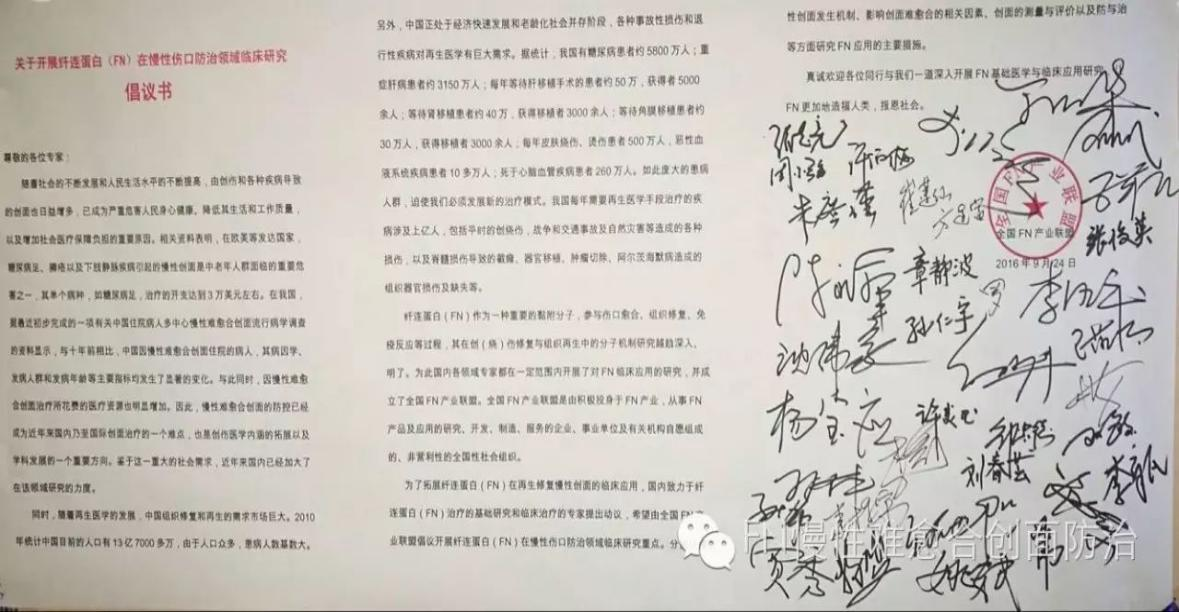 关于开展纤连蛋白（FN）在慢性伤口防治领域临床研究
倡议书
尊敬的各位专家：
随着社会的不断发展和人民生活水平的不断提高，由创伤和各种疾病导致
的创面也日益增多，已成为严重危害人民身心健康、降低其生活和工作质量，
以及增加社会医疗保障负担的重要原因。相关资料表明，在欧美等发达国家，
糖尿病足、褥疮以及下肢静脉疾病引起的慢性创面是中老年人群面临的重要危
害之一，其单个病种，如糖尿病足，治疗的开支达到3万美元左右。在我国，
据最近初步完成的一项有关中国住院病人多中心慢性难愈合创面流行病学调查
的资料显示，与十年前相比，中国因慢性难愈合创面住院的病人，其病因学、
发病人群和发病年龄等主要指标均发生了显著的变化。与此同时，因慢性难愈
合创面治疗所花费的医疗资源也明显增加。因此，慢性难愈合创面的防控已经
成为近年来国内乃至国际创面治疗的一个难点，也是创伤医学内涵的拓展以及
学科发展的一个重要方向。鉴于这一重大的社会需求，近年来国内已经加大了
在该领域研究的力度。
同时，随着再生医学的发展，中国组织修复和再生的需求市场巨大。2010
年统计中国目前的人口有13亿7000多万，由于人口众多，患病人数基数大。
另外，中国正处于经济快速发展和老龄化社会并存阶段，各种事故性损伤和退
行性疾病对再生医学有巨大需求。据统计，我国有糖尿病患者约5800万人；重
症肝病患者约3150万人；每年等待肝移植手术的患者约50万，获得者5000
余人；等待肾移植患者约40万，获得移植者3000余人；等待角膜移植患者约
30万人，获得移植者3000余人；每年皮肤烧伤、烫伤患者500万人，恶性血
液系统疾病患者10多万人；死于心脑血管疾病患者260万人。如此庞大的患病
人群，迫使我们必须发展新的治疗模式。我国每年需要再生医学手段治疗的疾
病涉及上亿人，包括平时的创烧伤，战争和交通事故及自然灾害等造成的各种
损伤，以及脊髓损伤导致的截瘫、器官移植、肿瘤切除、阿尔茨海默病造成的
组织器官损伤及缺失等。
纤连蛋白（FN）作为一种重要的黏附分子，参与伤口愈合、组织修复、免
疫反应等过程，其在创（烧）伤修复与组织再生中的分子机制研究越趋深入、
明了。为此国内各领域专家都在一定范围内开展了对FN临床应用的研究，并成
立了全国FN产业联盟。全国FN产业联盟是由积极投身于FN产业，从事FN
产品及应用的研究、开发、制造、服务的企业、事业单位及有关机构自愿组成
的、非营利性的全国性社会组织。
为了拓展纤连蛋白（FN）在再生修复慢性创面的临床应用，国内致力于纤
连蛋白（FN）治疗的基础研究和临床治疗的专家提出动议，希望由全国FN产
业联盟倡议开展纤连蛋白（FN）在慢性伤口防治领域临床研究重点。分
性创面发生机制、影响创面难愈合的相关因素、创面的测量与评价以及防与治
等方面研究FN应用的主要措施。
真诚欢迎各位同行与我们一道深入开展FN基础医学与临床应用研究，
FN更加地造福人类，报恩社会。
全国FN产业联盟
全国FN产业联盟
2016年9月24日
张俊英
章静波
孙仁宇
刘春芸
FH慢性难愈合创面防治